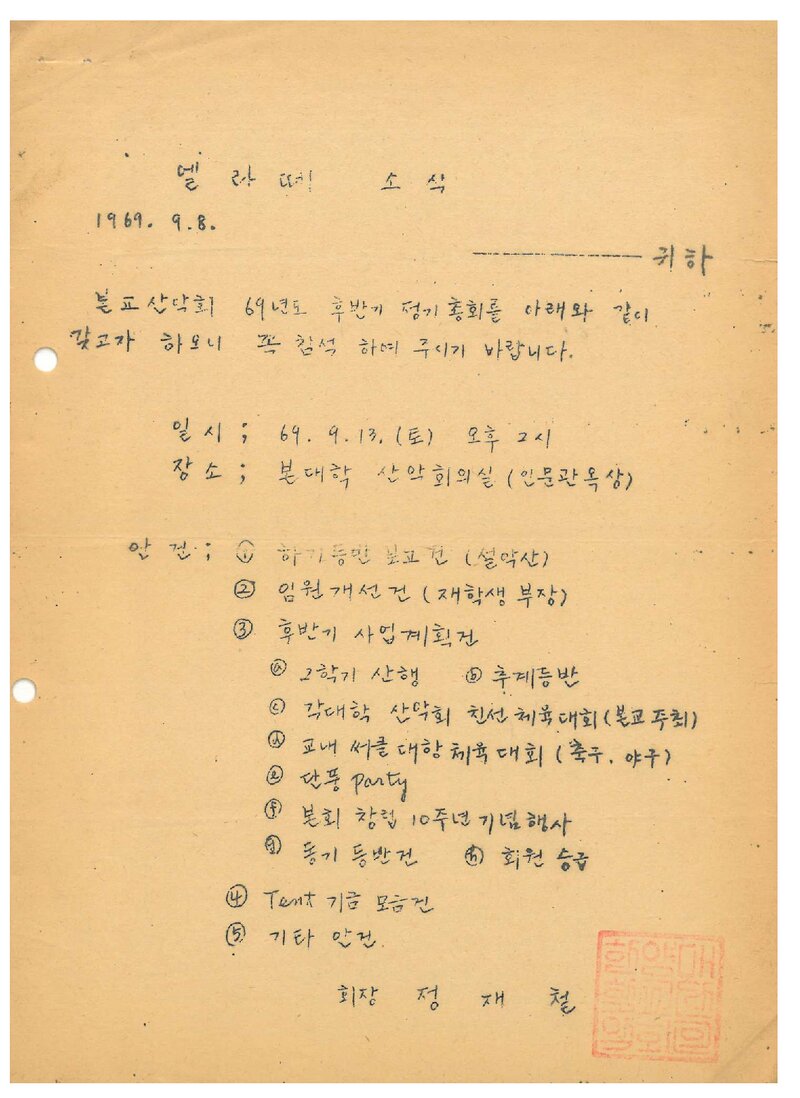 델라떼 소식
1969. 9. 8.
귀하
본교산악회 69년도 후반기 정기총회를 아래와 같이
갖고자 하오니 꼭 참석 하여 주시기 바랍니다.
일시; 69. 9. 13. (토) 오후 2시
장소; 본대학 산악회의실 (인문관옥상)
안건; ① 하기등반 보고건 (설악산)
② 임원개선건 (재학생 부장)
③ 후반기 사업계획건
ⓐ 2학기 산행 ⓑ 추계등반
ⓒ 각대학 산악회 친선 체육대회 (본교주최)
ⓓ 교내 써클 대항 체육대회 (축구, 야구)
ⓔ 단풍 party
ⓕ 본회 창립 10주년기념행사
ⓖ 동기 등반건 ⓗ 회원 승급
④ Tent 기금 모금건
⑤ 기타 안건.
회장 정재철